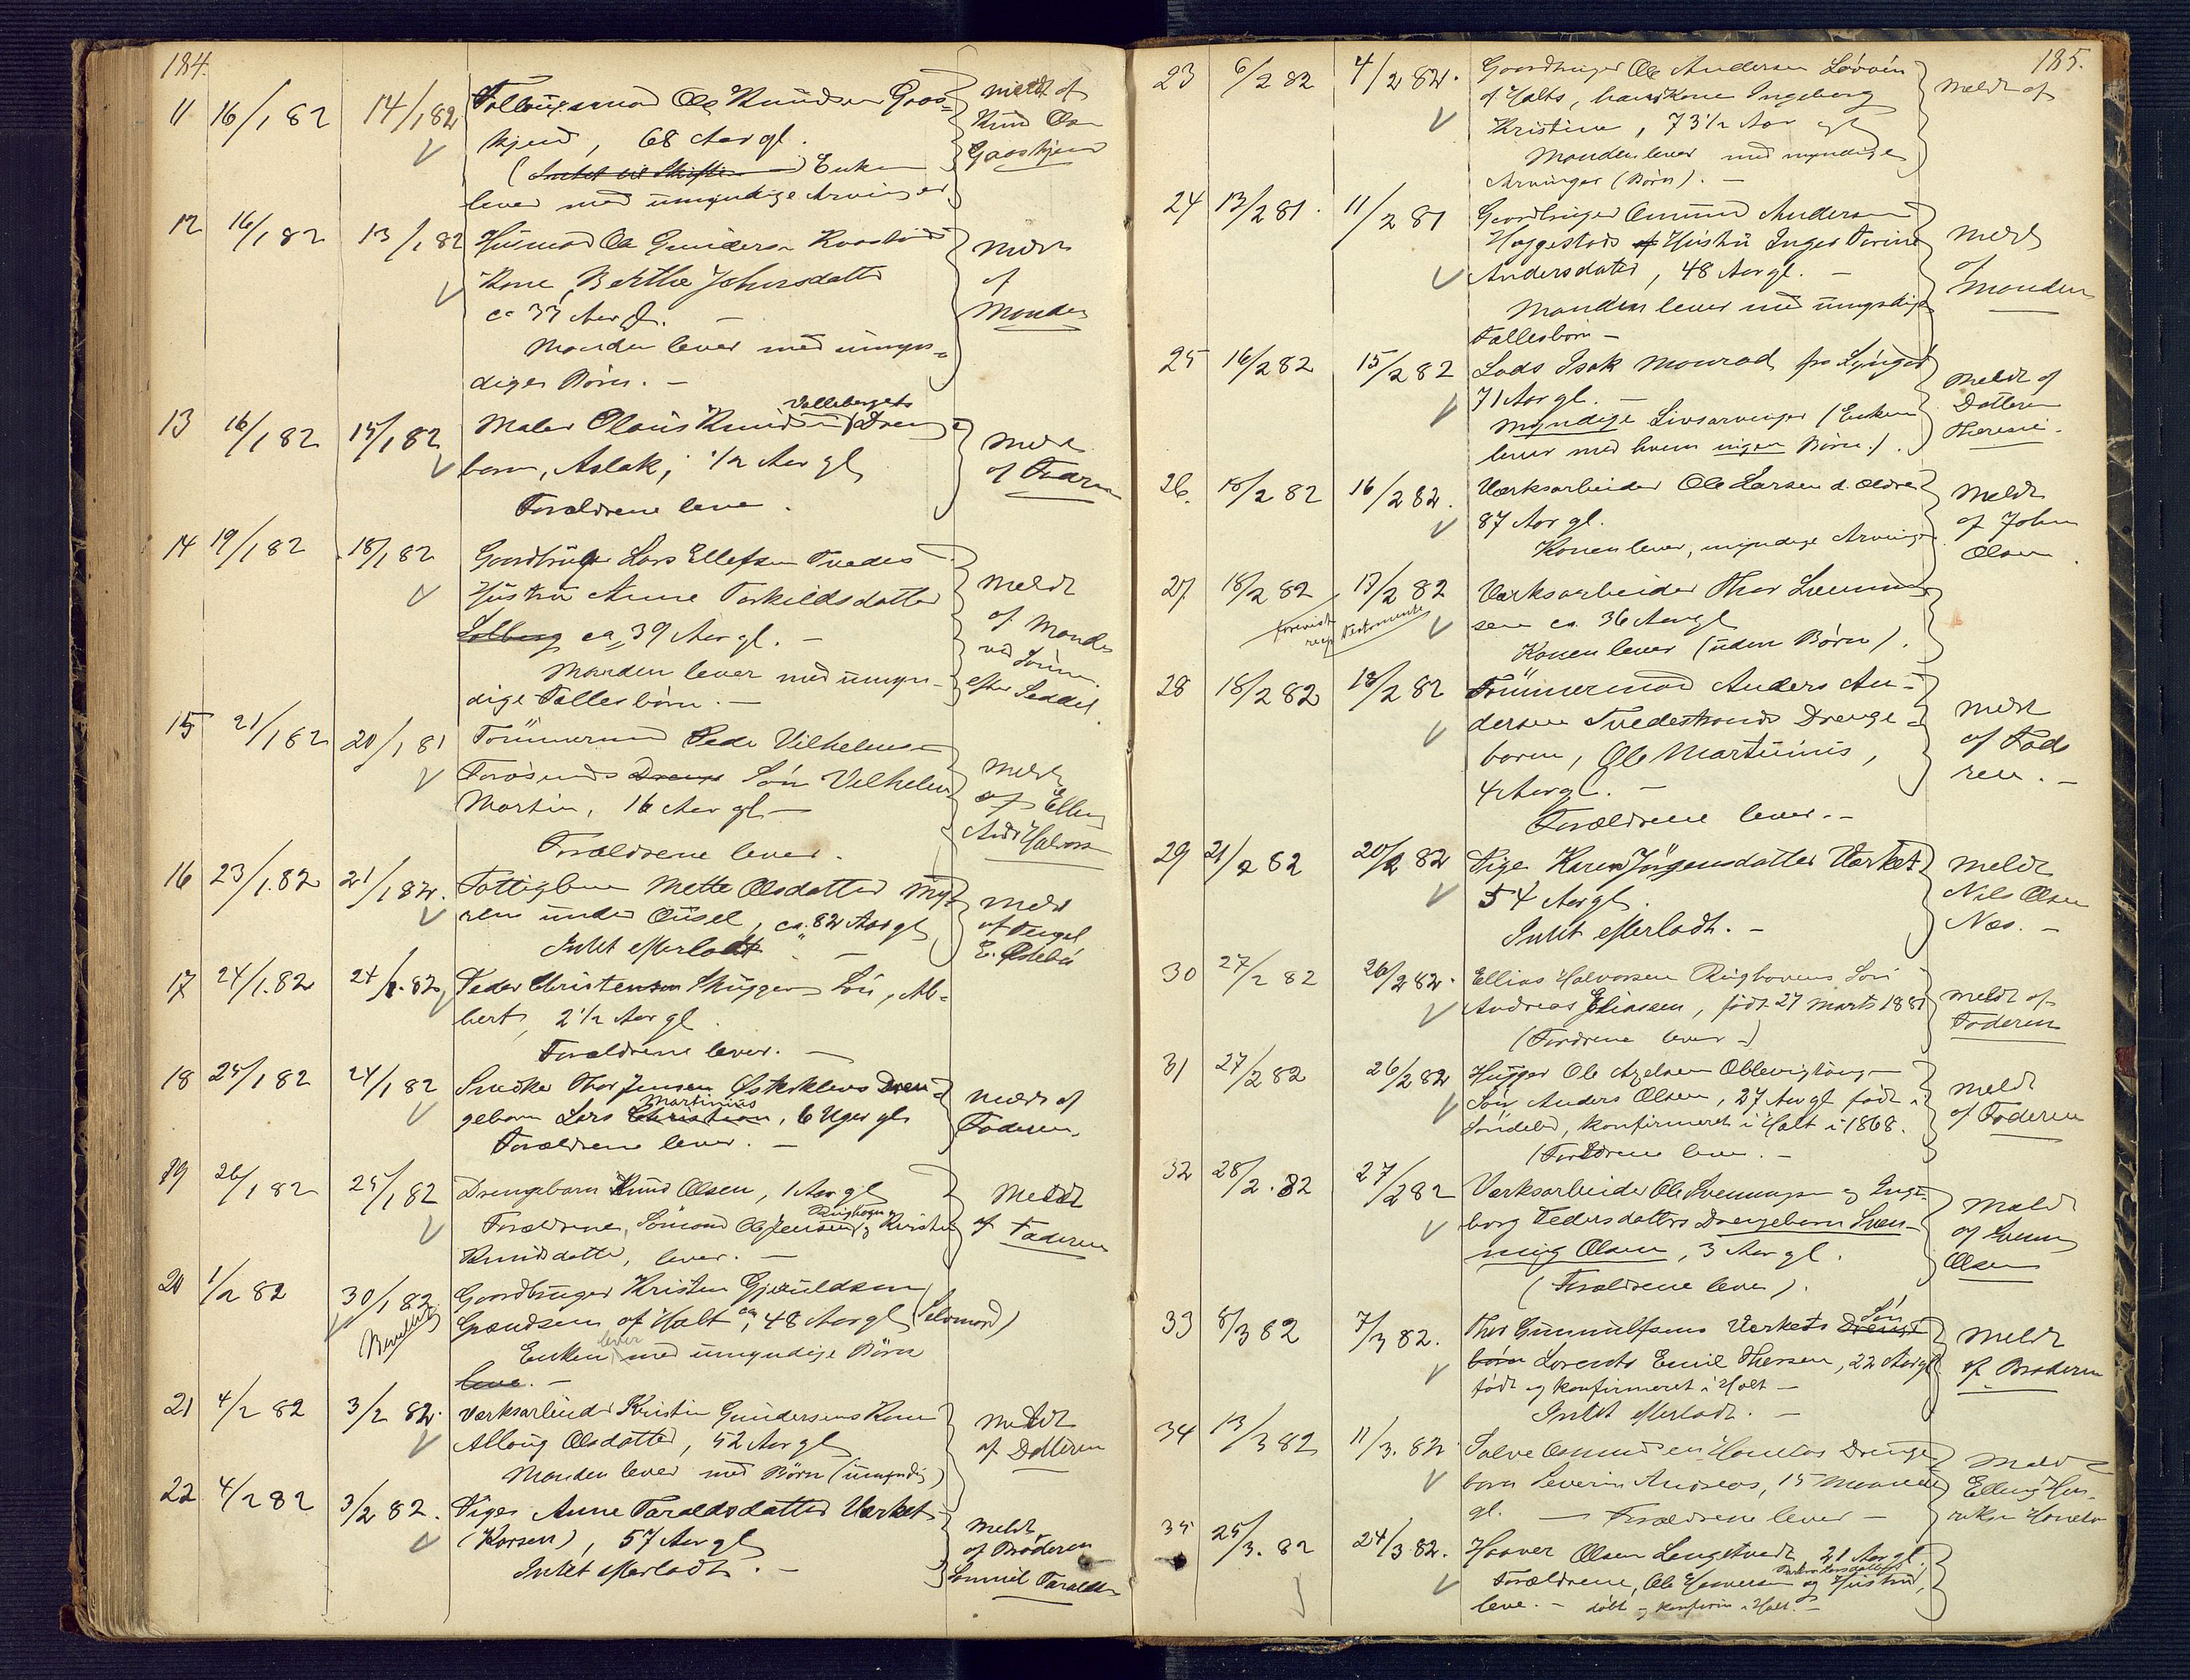 184.
11 16/1 82 14/1 82 Ole Knudsen Gaas-
kjend, 68 Aar gl.
(Intet til Skifte) Enken
lever med umyndige Arvinger
meldt af
Knud Ols
Gaaskjend
12 16/1 82 13/1 82 Husmand Ole Gundersen
Kone, Berthe Johnsdatter
ca 33 Aar gl. —
Manden lever med umyn-
dige Børn. —
Meldt
af
Manden
13 16/1 82 15/1 82 Maler Olaus Knudsen Vallebergets Drenge-
barn, Aslak, 1/2 Aar gl
Forældrene leve.
Meldt
af Faderen
14 19/1 82 18/1 82 Gaardbruger Lars Ellefsen Tvedes
Hustru Anne Torkildsdatter
Solberg ca 39 Aar gl. —
Manden lever med umyn-
dige Fællesbørn. —
Meldt
af Manden
ved Sønnen
efter Seddel.
15 21/1 82 20/1 81 Tømmermand Peder Vilhelmsen
Drenge Søn Vilhelm
Martin, 16 Aar gl —
Forældrene lever.
Meldt
af Elling
Andr Halvors
16 23/1.82 21/1 82. Fattiglem Mette Olsdatter My-
ren under Ousel, ca. 82 Aar gl
Intet efterladt —
Meldt
af Tengel
E. Østebø
17 24/1.82 24/1.82 Peder Christensen Skuggens Søn, Al-
bert, 2 1/2 Aar gl.
Forældrene lever. —
18 25/1 82 24/1 82 Snedker Thor Jensen Dren-
gebarn Lars Christian Martinius, 6 Uger gl
Forældrene lever. —
Meldt af
Faderen.
19 26/1 82 25/1 82 Drengebarn Knud Olsen, 1 Aar gl
Forældrene, Sømand Ole Jensen Ringhoven og Kirsten
Knudsdatter, lever. —
Meldt
af Faderen
20 1/2 82 30/1 82 Gaardbruger Kristen Gjeruldsen
Grændsen af Holt, ca 48 Aar gl (Selvmord)
Enken lever med umyndige Børn
leve. —
21 4/2 82 3/2 82. Værksarbeider Kristen Gundersens Kone
Allaug Olsdatter, 52 Aar gl
Manden lever med Børn (umyndig)
Meldt
af Datteren
22 4/2 82 3/2 82. Pigen Anne Taraldsdatter Værket
(Korsen), 57 Aar gl
Intet efterladt. —
Meldt
af Broderen
Samuel Taraldsen
185.
23 6/2 82 4/2 82. Gaardbruger Ole Andersen Løvvin
af Holts, hans Kone Ingeborg
Kristine, 73 1/2 Aar gl
Manden lever med myndige
Arvinger (Børn). —
Meldt af
24 13/2 81. 11/2 81 Gaardbruger Omund Andersen
Haggestads af Hustru Inger Torine
Andersdatter, 48 Aar gl. —
Manden lever med umyndige
Fællesbørn —
Meldt
af
Manden
25 16/2 82 15/2 82 Lods Isak Monrad fra Lyngør
71 Aar gl. —
Myndige Livsarvinger (Enken
lever med hvem ingen Børn.).
Meldt af
Datteren
Therese.
26. 18/2 82 16/2 82. Værksarbeider Ole Larsen d. ældre
87 Aar gl.
Konen lever, myndige Arvinger
Meldt
af John
Olsen.
27 18/2 82 17/2 82 Værksarbeider Thor Svennung-
sen ca. 36 Aar gl
Konen lever (uden Børn).
forevist
recip Testamente
28 18/2 82 18/2 82 Tømmermand Anders An-
dersen Tvedestrands Drenge-
barn, Ole Martinius,
4 Aar gl. —
Forældrene lever. —
Meldt
af Fade
ren. —
29 21/2 82 20/2 82 Pige Karen Jörgensdatter Værket
54 Aar gl.
Intet efterladt. —
Meldt
Nils Olsen
Næs. —
30 27/2 82 26/2 82. Ellias Halvorsen Ringhovens Søn
Andreas Eliassen, født 27 Marts 1881
(Forældrene lever —)
Meldt af
Faderen
31 27/2 82 26/2 82 Hugger Ole Axelsen
Søn Anders Olsen, 27 Aar gl født i
Søndeled, konfirmeret i Holt i 1868.
(Forældrene leve. —
Meldt
af Faderen
32 28/2.82 27/2 82 Værksarbeider Ole Svennungsen og Inge-
borg Pedersdatters Drengebarn Sven-
nung Olsen, 3 Aar gl.
(Forældrene lever).
Meldt
af Svennung
Olsen
33 8/3 82 7/3 82. Thor Gunnulfsens Værkets Drenge Søn
børn Lorents Emil Thorsen, 22 Aar gl
født og konfirmeret i Holt —
Intet efterladt. —
Meldt
af Broderen
34 13/3 82 11/3.82 Salve Omundsen Drenge
barn Severin Andreas, 15 Maaneder
gl. — Forældrene lever —
Meldt
Elling Hen-
riksen
35 25/3.82 24/3 82. Haaver Olsen Langetvedt 21 Aar gl.
Forældrene, Ole Haaversen og Hustru,
leve. — døbt og konfirm i Holt. —